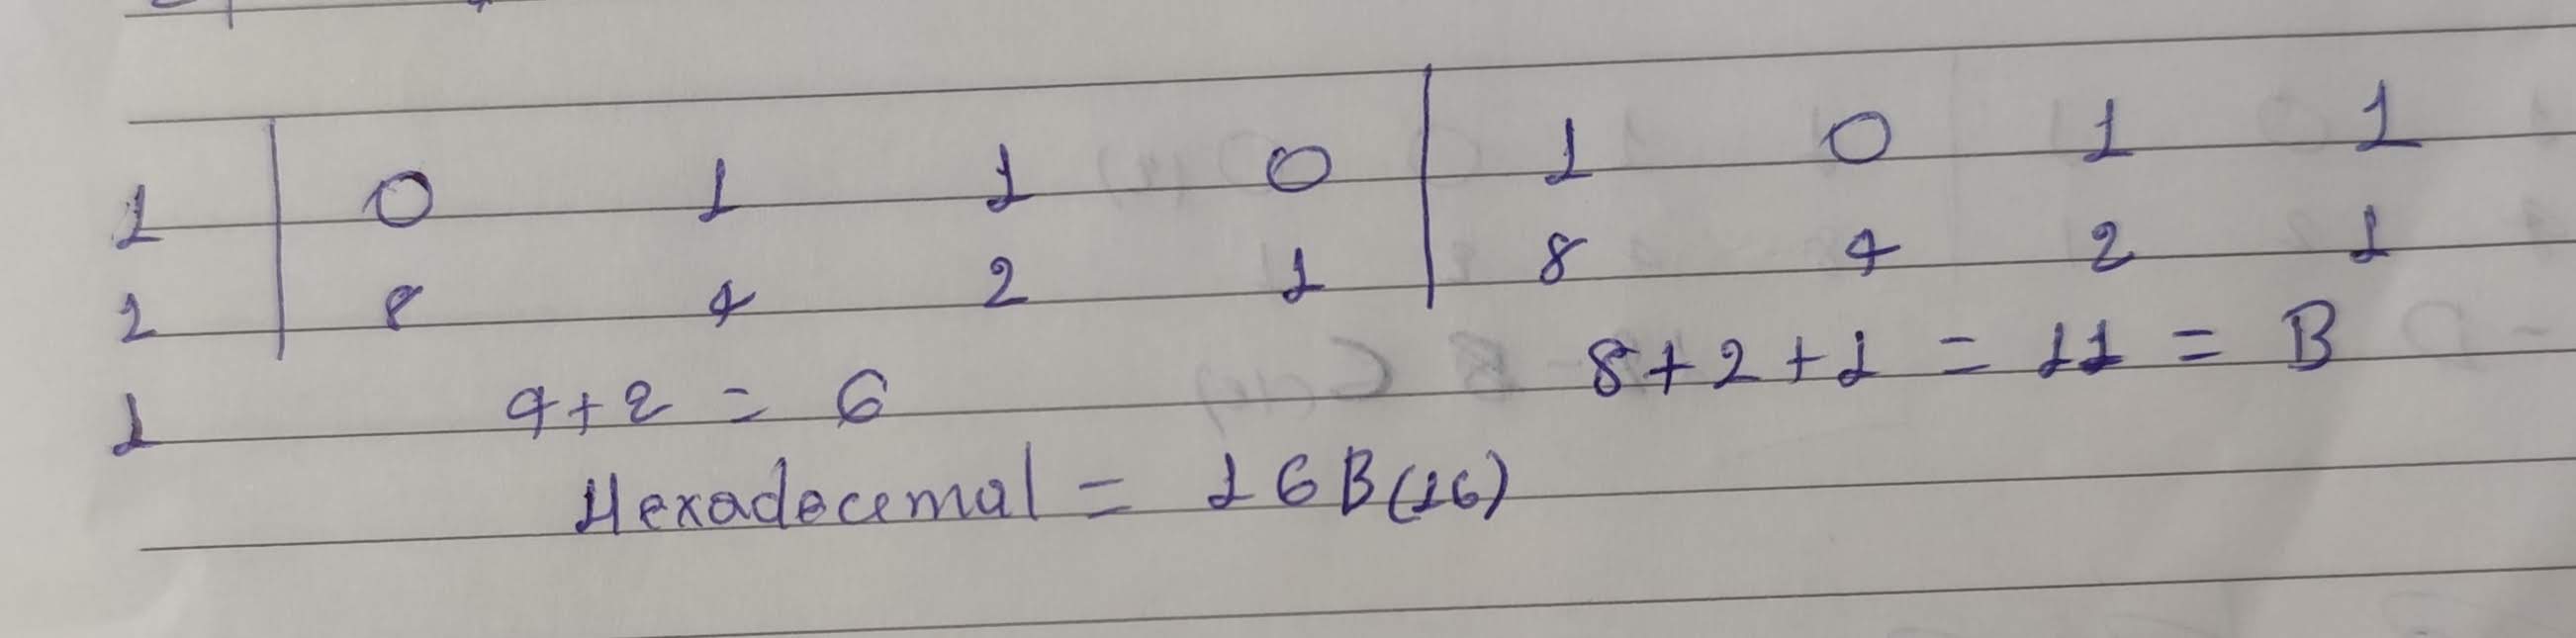 1 | 0 1 1 0 | 1 0 1 1
2 | 8 4 2 1 | 8 4 2 1
1 4+2 = 6 8+2+1 = 11 = B
Hexadecemal = 16B(16)